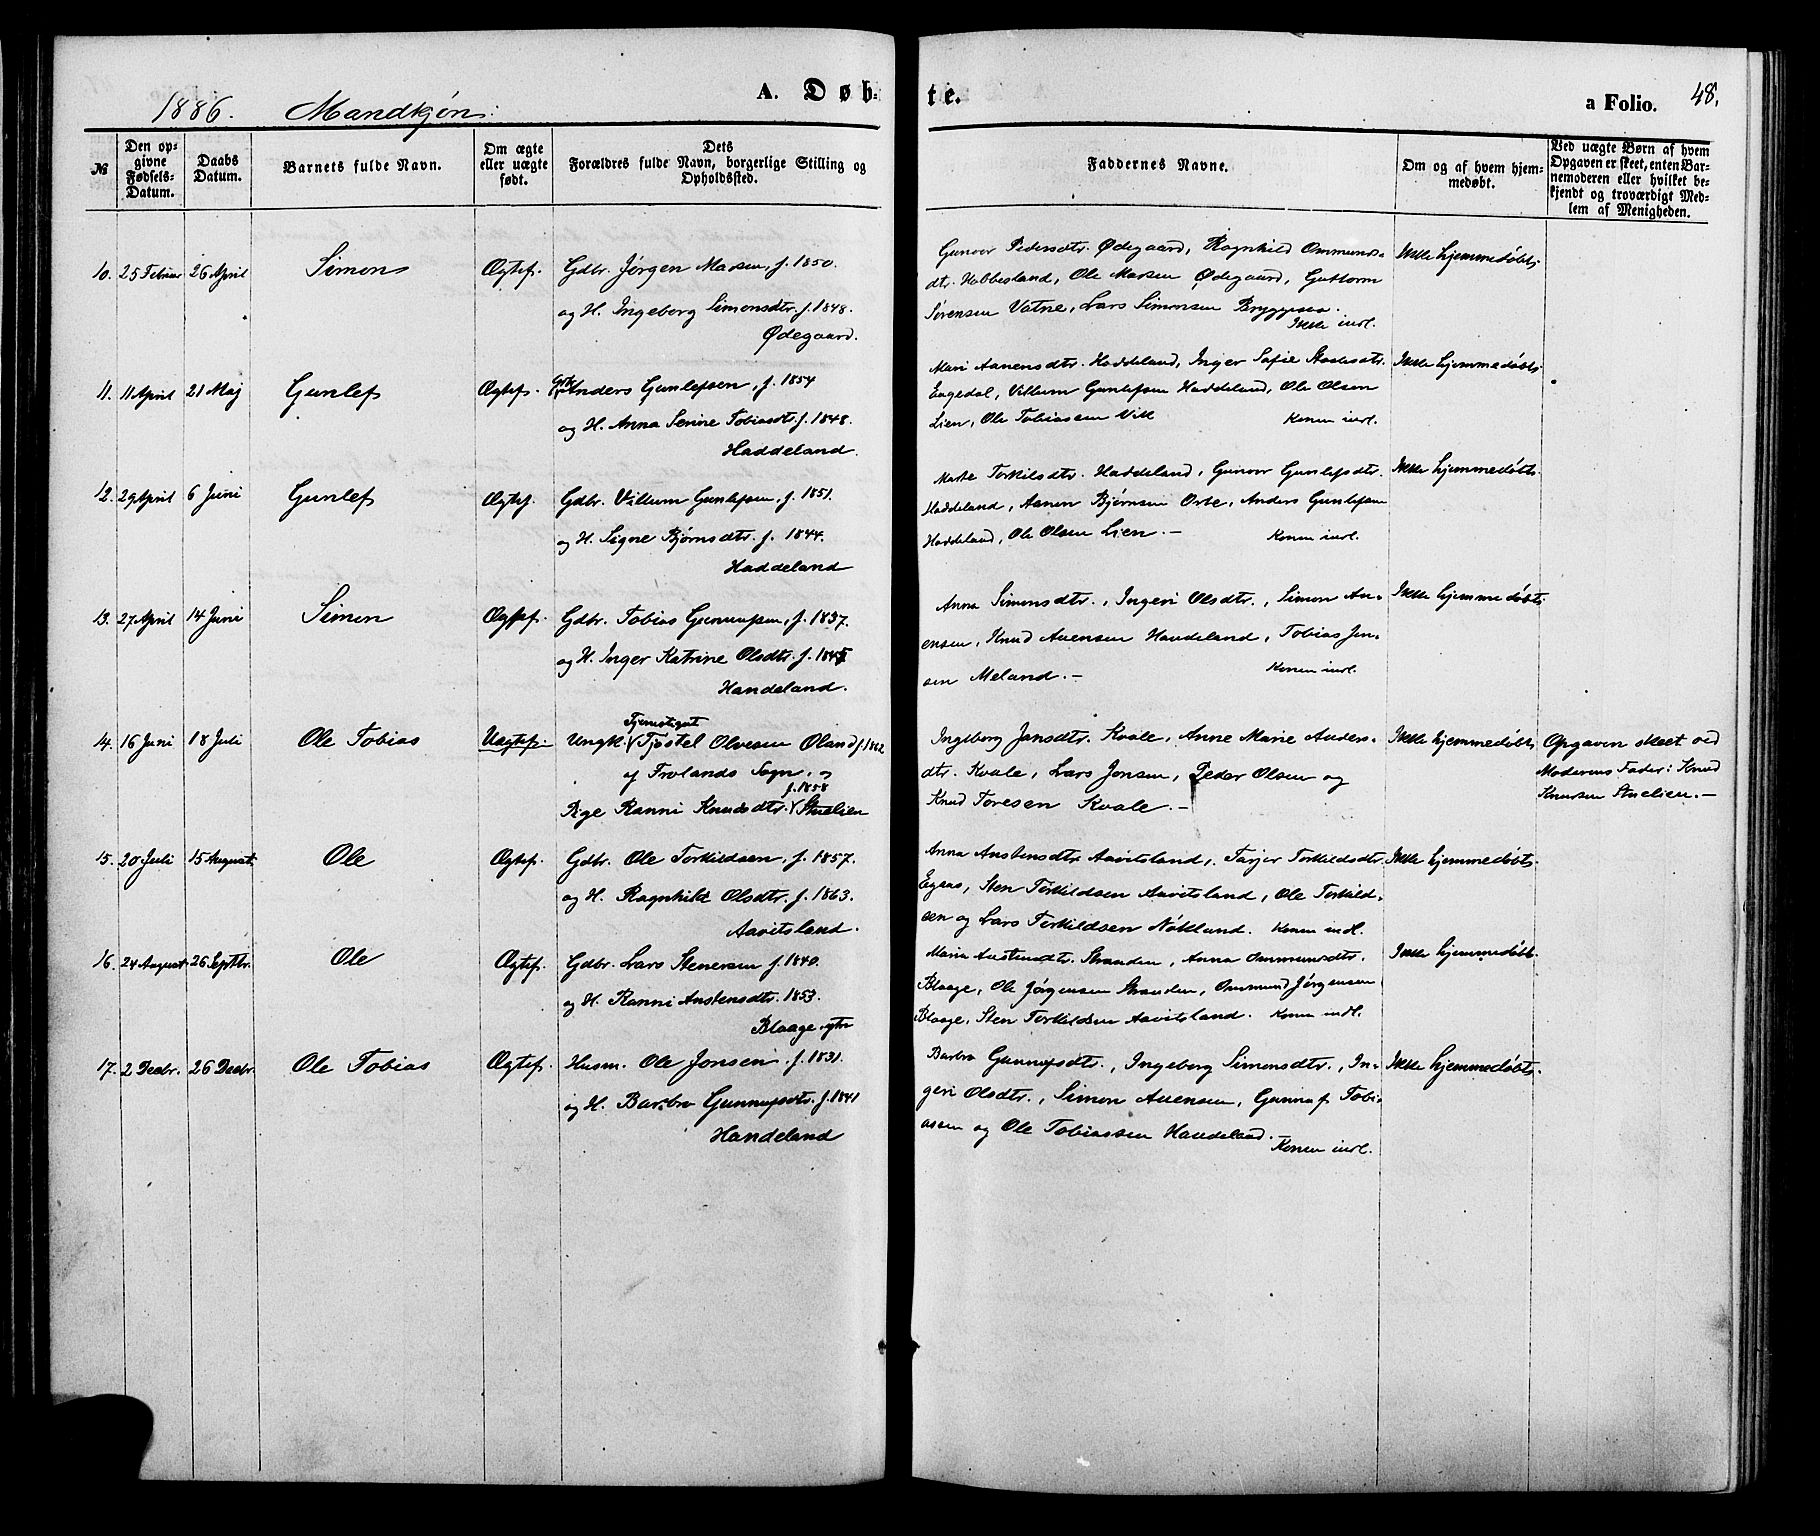 1886. Mandkjøn.
A. Døb-
te.
a Folio. 48.
№
Den op-
givne
Fødsels-
Datum.
Daabs
Datum.
Barnets fulde Navn.
Om ægte
eller uægte
født.
Dets
Forældres fulde Navn, borgerlige Stilling og
Opholdssted.
Faddernes Navne.
Om og af hvem hjem-
medøbt.
Ved uægte Børn af hvem
Opgaven er skeet, enten Bar-
nemoderen eller hvilket be-
kjendt og troværdigt Med-
lem af Menigheden.
10. 25 Februar 26 April Simon Ægtef. Gdbr. Jørgen Madsen, f. 1850.
og H. Ingeborg Simonsdtr. f. 1848.
Ødegaard.
Gunvor Pedersdtr. Ødegaard, Ragnhild Ommunds-
dtr. Hobbesland, Ole Madsen Ødegaard, Guttorm
Sørensen Vatne, Lars Simonsen Bryggesaa.
Ikke inrl.
Ikke hjemmedøbt.
11. 11 April 21 Maj Gunlef Ægtef. Gbr. Anders Gunlefsen, f. 1854
og H. Anna Serine Tobiasdtr. f. 1848.
Haddeland.
Mari Aanensdtr. Haddeland, Inger Sofie
Engedal, Villum Gunlefsen Haddeland, Ole Olsen
Lien, Ole Tobiassen
Konen inrl.
Ikke hjemmedøbt.
12. 29 April 6 Juni Gunlef Ægtef. Gdbr. Villum Gunlefsen, f. 1851.
og H. Signe Bjørnsdtr. f. 1844.
Haddeland
Marte Torkilsdtr. Haddeland, Gunvor Gunlefsdtr.
Haddeland, Aanen Bjørnsen Orte, Anders Gunlefsen
Haddeland, Ole Olsen Lien. –
Konen inrl.
Ikke hjemmedøbt.
13. 27 April 14 Juni Simon Ægtef. Gdbr. Tobias Gunnufsen, f. 1837.
og H. Inger Katrine Olsdtr. f.
Handeland.
Anna Simonsdtr., Ingeri Olsdtr., Simon Au-
ensen, Knud Auensen Handeland, Tobias Jon-
sen Meland. –
Konen inrl.
Ikke hjemmedøbt.
14. 16 Juni 18 Juli Ole Tobias Uægtef. Ungk. Tjenestegut Tjøstel Olvesen Oland f. 1862
af Frolands Sogn, og
Pige Ranni Knudsdtr. f. 1858 Stuelien
Ingeborg Jonsdtr. Kvale, Anne Marie Anders-
dtr. Kvale, Lars Jonsen, Peder Olsen og
Knud Toresen Kvale. –
Ikke hjemmedøbt.
Opgaven skeet ved
Moderens Fader: Knud
Knudsen Stuelien. –
15. 20 Juli 15 August Ole Ægtef. Gdbr. Ole Torkildsen, f. 1857.
og H. Ragnhild Olsdtr. f. 1863.
Aavitsland.
Anna Anstensdtr. Aavitsland, Tarjer Torkildsdtr.
Egaas, Sten Torkildsen Aavitsland, Ole Torkild-
sen og Lars Torkildsen Nökland. Konen indl.
Ikke hjemmedøbt.
16. 24 August 26 Septbr. Ole Ægtef. Gdbr. Lars Stenersen f. 1840.
og H. Ranni Anstensdtr. 1853.
Blaage
Maria Austundtr. Stranden, Anna Ommundsdtr.
Blaage, Ole Jörgensen Stranden, Ommund Jörgensen
Blaage, Sten Torkildsen Aavitsland. Konen indl.
Ikke hjemmedøbt.
17. 2 Decbr. 26 Decbr. Ole Tobias Ægtef. Husm. Ole Jonsen, f. 1831.
og H. Barbro Gunnufsdtr. f. 1841
Handeland
Barbro Gunnufsdtr., Ingeborg Simonsdtr., In-
geri Olsdtr., Simon Auensen, Gunnuf Tobi-
assen og Ole Tobiassen Handeland.
Konen inrl.
Ikke hjemmedøbt.